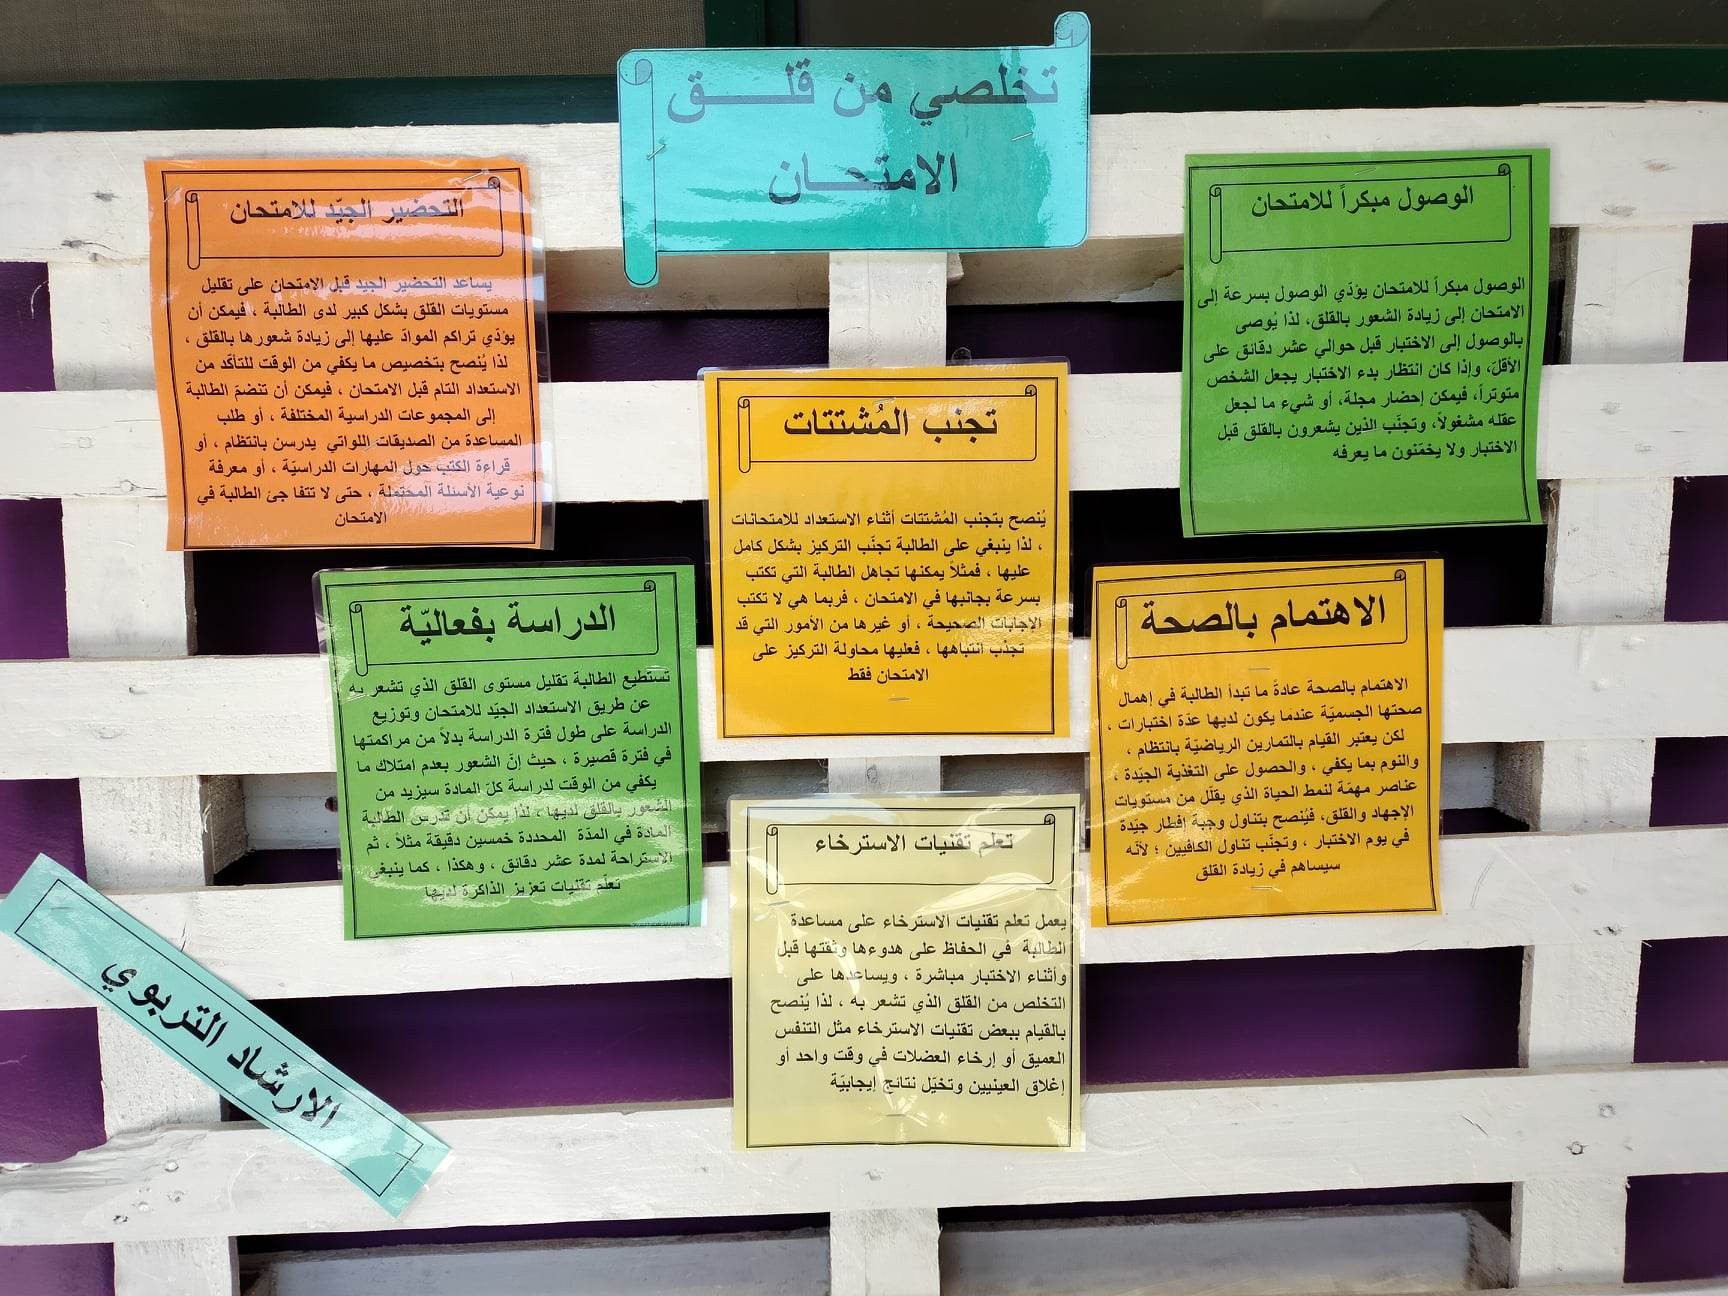 تخلصي من قلـــــق
الامتحـــان
الوصول مبكراً للامتحان
الوصول مبكراً للامتحان يؤدّي الوصول بسرعة إلى
الامتحان إلى زيادة الشعور بالقلق، لذا يُوصى
بالوصول إلى الاختبار قبل حوالي عشر دقائق على
الأقلّ، وإذا كان انتظار بدء الاختبار يجعل الشخص
متوتراً، فيمكن إحضار مجلة، أو شيء ما لجعل
عقله مشغولاً، وتجنّب الذين يشعرون بالقلق قبل
الاختبار ولا يخمّنون ما يعرفه
التحضير الجيّد للامتحان
يساعد التحضير الجيد قبل الامتحان على تقليل
مستويات القلق بشكل كبير لدى الطالبة ، فيمكن أن
يؤدّي تراكم الموادّ عليها إلى زيادة شعورها بالقلق ،
لذا يُنصح بتخصيص ما يكفي من الوقت للتأكّد من
الاستعداد التام قبل الامتحان ، فيمكن أن تنضمّ الطالبة
إلى المجموعات الدراسية المختلفة ، أو طلب
المساعدة من الصديقات اللواتي يدرسن بانتظام ، أو
قراءة الكتب حول المهارات الدراسيّة ، أو معرفة
نوعية الأسئلة المحتملة ، حتى لا تتفا جئ الطالبة في
الامتحان
تجنب المُشتتات
يُنصح بتجنب المُشتتات أثناء الاستعداد للامتحانات
، لذا ينبغي على الطالبة تجنّب التركيز بشكل كامل
عليها ، فمثلاً يمكنها تجاهل الطالبة التي تكتب
بسرعة بجانبها في الامتحان ، فربما هي لا تكتب
الإجابات الصحيحة ، أو غيرها من الأمور التي قد
تجذب انتباهها ، فعليها محاولة التركيز على
الامتحان فقط
الاهتمام بالصحة
الاهتمام بالصحة عادةً ما تبدأ الطالبة في إهمال
صحتها الجسميّة عندما يكون لديها عدّة اختبارات ،
لكن يعتبر القيام بالتمارين الرياضيّة بانتظام ،
والنوم بما يكفي ، والحصول على التغذية الجيّدة ،
عناصر مهمّة لنمط الحياة الذي يقلّل من مستويات
الإجهاد والقلق، فيُنصح بتناول وجبة إفطار جيّدة
في يوم الاختبار ، وتجنّب تناول الكافيين ؛ لأنّه
سيساهم في زيادة القلق
الدراسة بفعاليّة
تستطيع الطالبة تقليل مستوى القلق الذي تشعر به
عن طريق الاستعداد الجيّد للامتحان وتوزيع
الدراسة على طول فترة الدراسة بدلاً من مراكمتها
في فترة قصيرة ، حيث إنّ الشعور بعدم امتلاك ما
يكفي من الوقت لدراسة كلّ المادة سيزيد من
الشعور بالقلق لديها ، لذا يمكن أن تدرس الطالبة
المادة في المدّة المحددة خمسين دقيقة مثلاً ، ثم
الاستراحة لمدة عشر دقائق ، وهكذا ، كما ينبغي
تعلّم تقنيات تعزيز الذاكرة لديها
تعلم تقنيات الاسترخاء
يعمل تعلم تقنيات الاسترخاء على مساعدة
الطالبة في الحفاظ على هدوءها وثقتها قبل
وأثناء الاختبار مباشرة ، ويساعدها على
التخلص من القلق الذي تشعر به ، لذا يُنصح
بالقيام ببعض تقنيات الاسترخاء مثل التنفس
العميق أو إرخاء العضلات في وقت واحد أو
إغلاق العينيين وتخيّل نتائج إيجابيّة
الارشاد التربوي